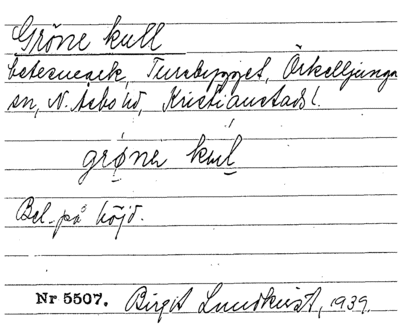 Gröne kull
betesmark, Tursbygget, Örkelljunga
sn, N. Åsbo hd, Kristianstads l.
grønər kul
Bel. på höjd.
Nr 5507. Birgit Lundkvist, 1939.